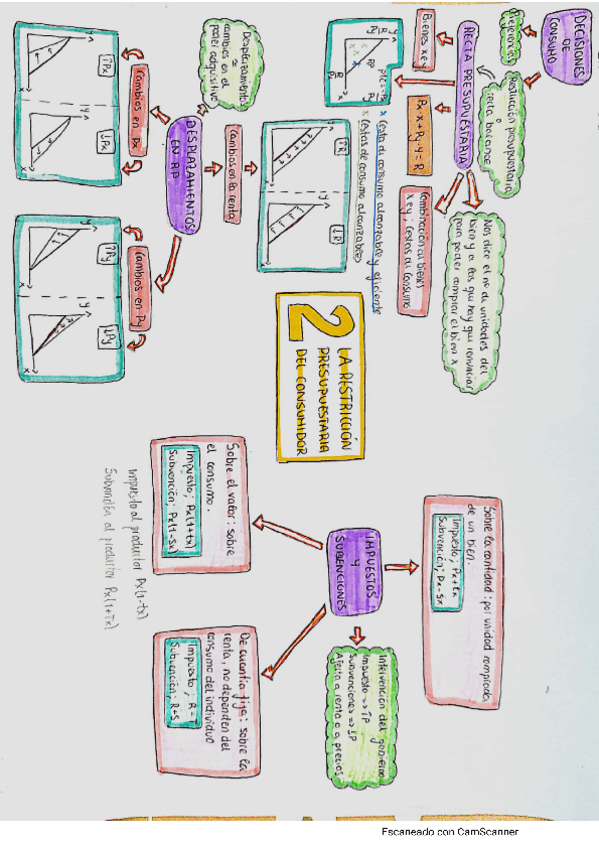 DECISIONES
DE
CONSUMO
Preferencias
Restricción presupuestaria
o
recta balance
RECTA PRESUPUESTARIA
Bienes x e y
Px·x + Py·y = R
Combinación de bienes
x e y: cestas de consumo
Nos dice el nº de unidades del
bien y a las que hay que renunciar
para poder comprar el bien x
x cesta de consumo alcanzable y eficiente
x cestas de consumo alcanzables
2
LA RESTRICCIÓN
PRESUPUESTARIA
DEL CONSUMIDOR
DESPLAZAMIENTOS
EN RP
Desplazamiento
=
cambios en el
poder adquisitivo
Cambios en la renta
↑R
↓R
Cambios en Px
↑Px
↓Px
Cambios en Py
↑Py
↓Py
IMPUESTOS
Y
SUBVENCIONES
Sobre la cantidad: por unidad comprada
de un bien.
Impuesto; Px+tx
Subvención; Px-sx
Intervención del gobierno
Impuesto => ↑P
Subvenciones => ↓P
Afecta a renta o a precios
Sobre el valor: sobre
el consumo.
Impuesto; Px(1+tx)
Subvención; Px(1-sx)
De cuantía fija: sobre la
renta, no dependen del
consumo del individuo
Impuesto; R-T
Subvención; R+S
Impuesto al productor Px(1-tx)
Subvención al productor Px(1+Tx)
Escaneado con CamScanner